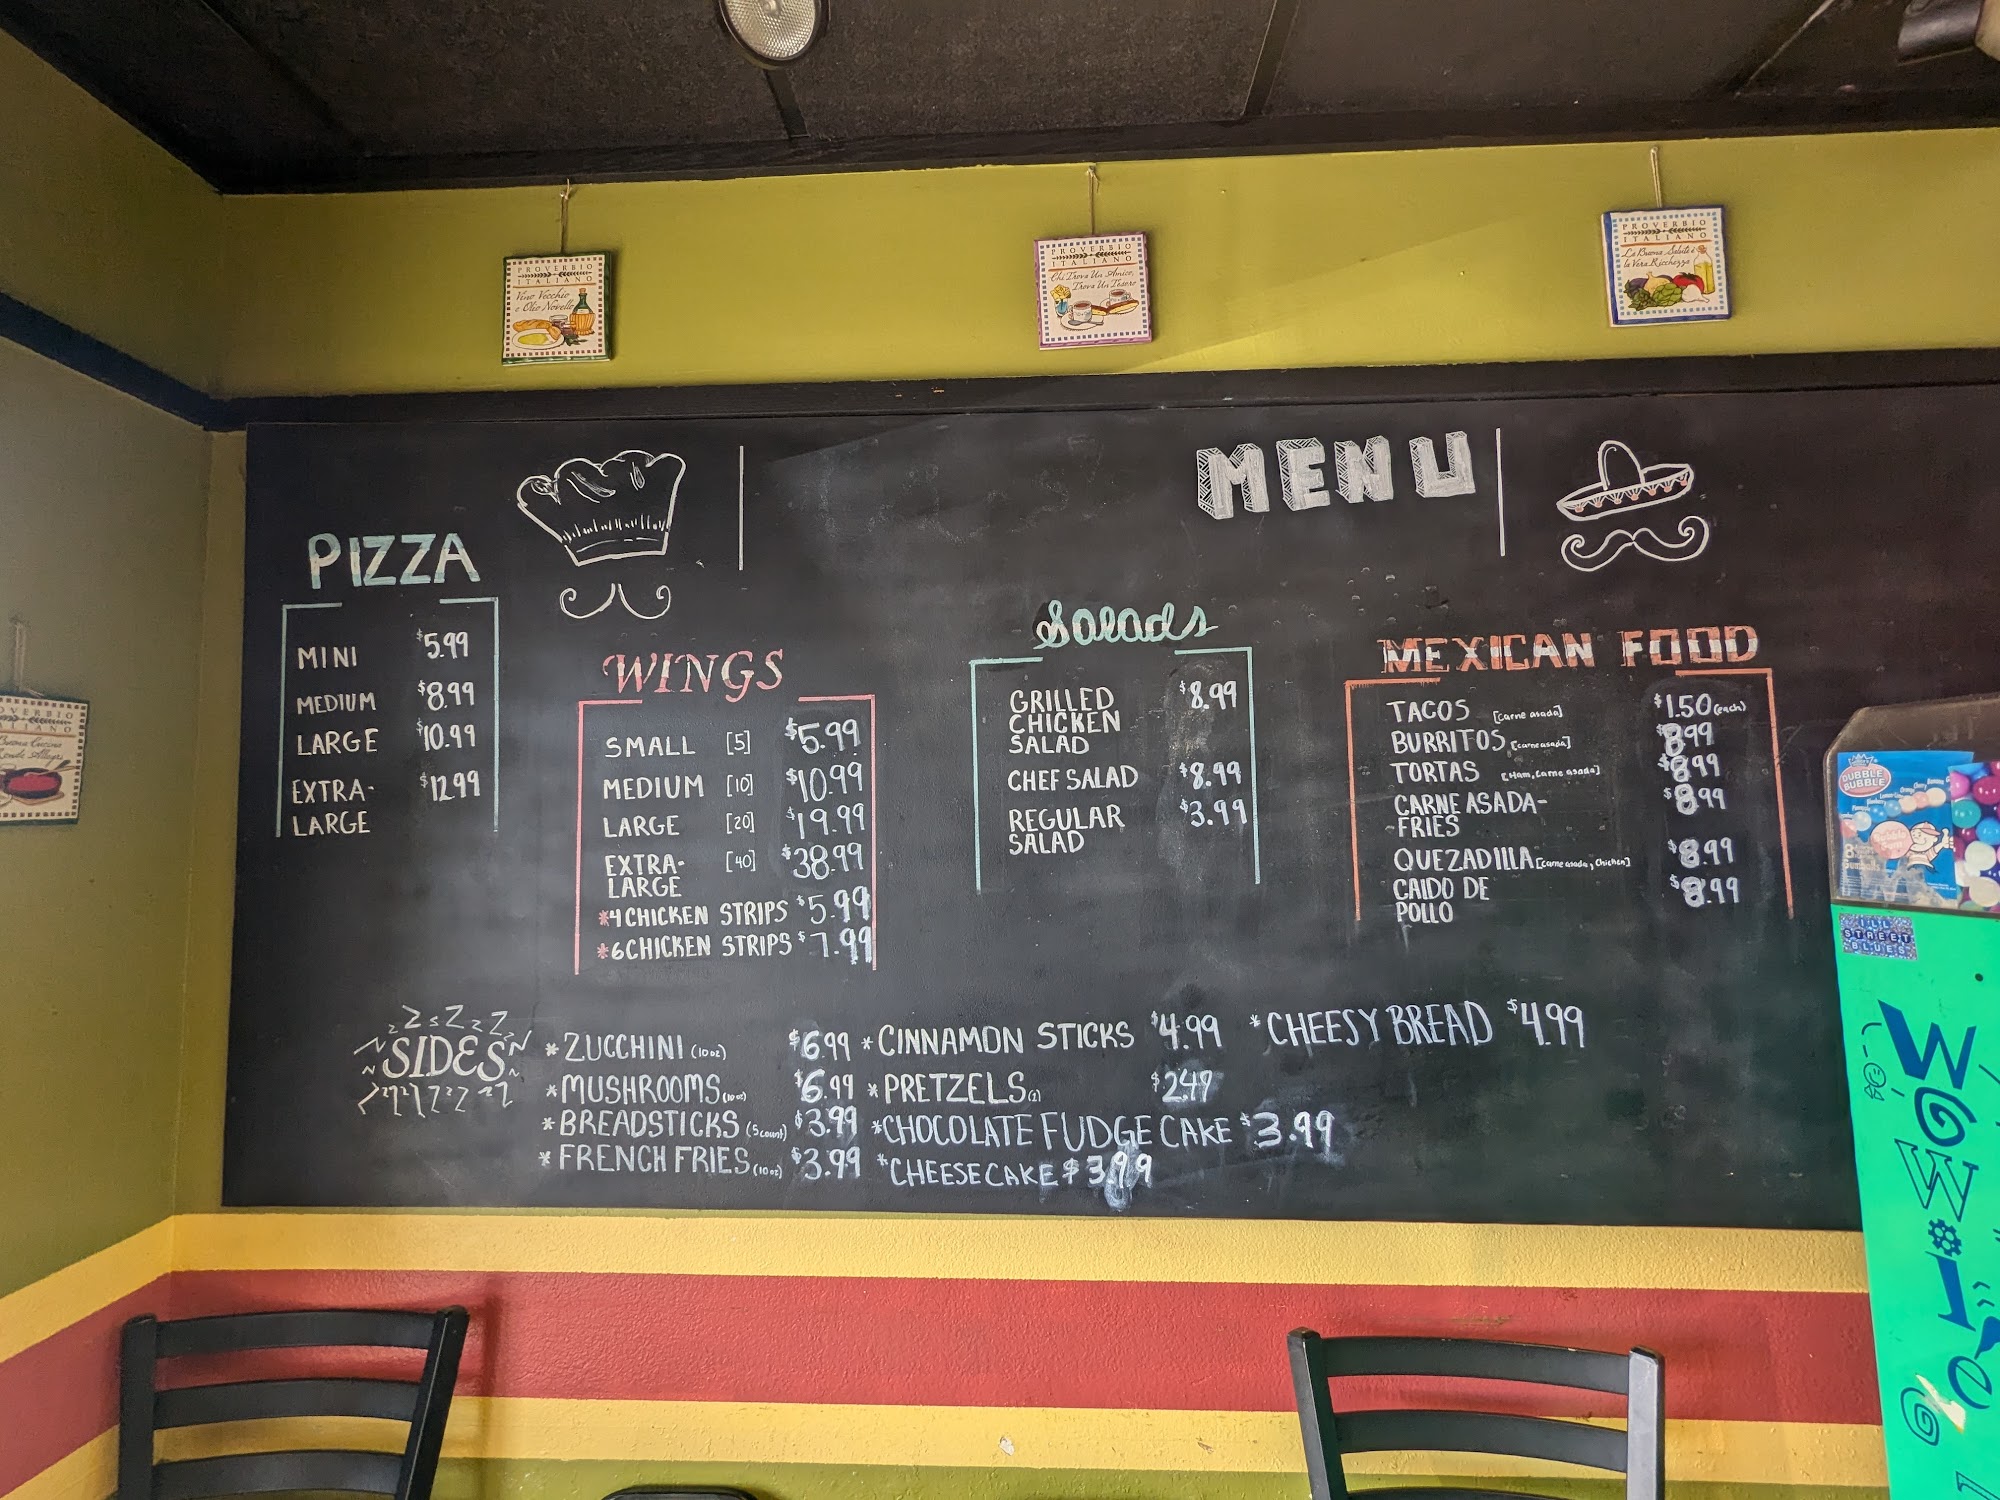 PROVERBIO
ITALIANO
Vino Vecchio
e Olio Novello
PROVERBIO
ITALIANO
Chi Trova Un Amico,
Trova Un Tesoro
PROVERBIO
ITALIANO
La Buona Salute è
la Vera Ricchezza
MENU
PIZZA
MINI $5.99
MEDIUM $8.99
LARGE $10.99
EXTRA- $12.99
LARGE
WINGS
SMALL [5] $5.99
MEDIUM [10] $10.99
LARGE [20] $19.99
EXTRA- [40] $38.99
LARGE
*4 CHICKEN STRIPS $5.99
*6 CHICKEN STRIPS $7.99
Salads
GRILLED $8.99
CHICKEN
SALAD
CHEF SALAD $8.99
REGULAR $3.99
SALAD
MEXICAN FOOD
TACOS [carne asada] $1.50 (each)
BURRITOS [carne asada] $8.99
TORTAS [Ham, Carne asada] $8.99
CARNE ASADA- $8.99
-FRIES
QUEZADILLA [carne asada, Chicken] $8.99
CAIDO DE $8.99
POLLO
SIDES
*ZUCCHINI (10oz) $6.99 *CINNAMON STICKS $4.99 *CHEESY BREAD $4.99
*MUSHROOMS (10oz) $6.99 *PRETZELS (1) $2.49
*BREADSTICKS (5 count) $3.99 *CHOCOLATE FUDGE CAKE $3.99
*FRENCH FRIES (10oz) $3.99 *CHEESECAKE $3.99
DUBBLE
BUBBLE
Gumballs
ILL
STREET
BLUES
WOWie